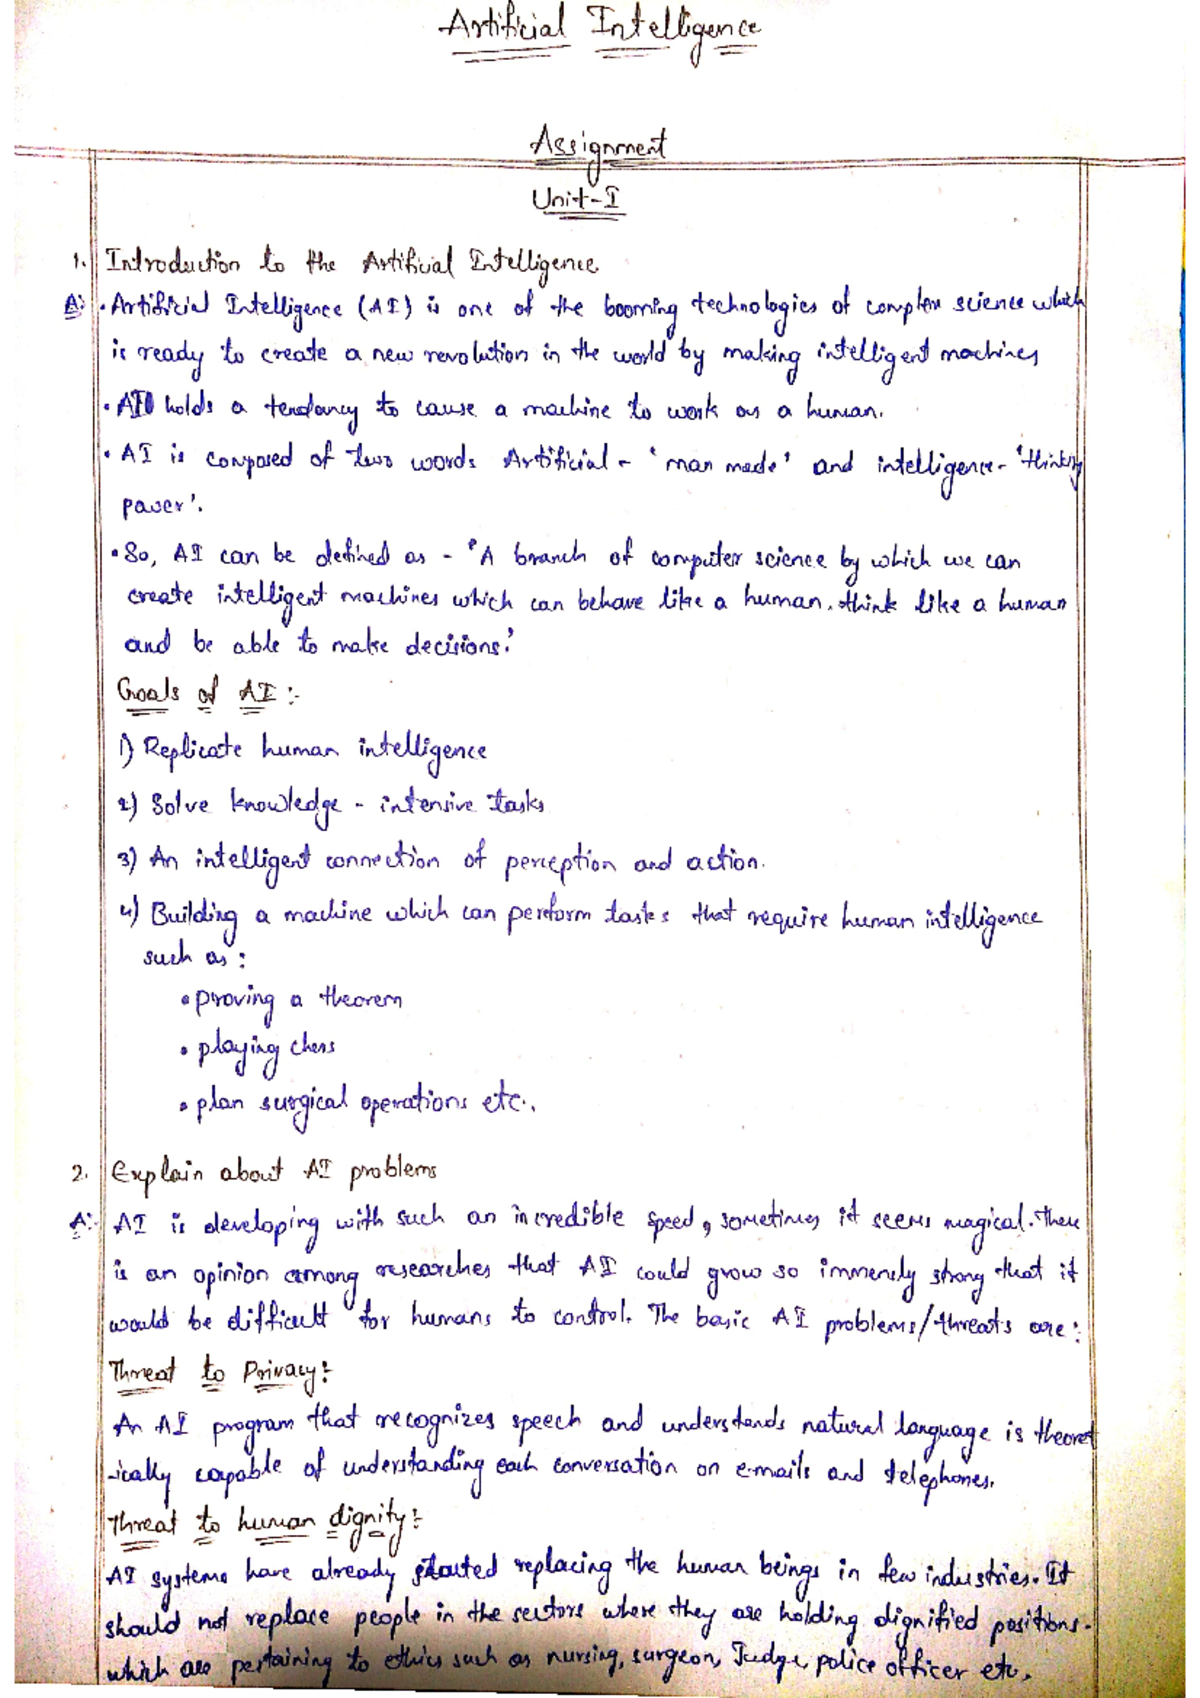 Artificial Intelligence
Assignment
Unit-I
1. Introduction to the Artificial Intelligence
A: • Artificial Intelligence (AI) is one of the booming technologies of complex science which
is ready to create a new revolution in the world by making intelligent machines
• AI holds a tendancy to cause a machine to work as a human.
• AI is composed of two words Artificial - 'man made' and intelligence - 'thinking
power'.
• So, AI can be defined as - "A branch of computer science by which we can
create intelligent machines which can behave like a human, think like a human
and be able to make decisions."
Goals of AI :-
1) Replicate human intelligence
2) Solve knowledge - intensive tasks
3) An intelligent connection of perception and action.
4) Building a machine which can perform tasks that require human intelligence
such as :
• proving a theorem
• playing chess
• plan surgical operations etc..
2. Explain about AI problems
A:- AI is developing with such an incredible speed, sometimes it seems magical. There
is an opinion among researches that AI could grow so immensly strong that it
would be difficult for humans to control. The basic AI problems/threats are :
Threat to Privacy:-
An AI program that recognizes speech and understands natural language is theoret
-ically capable of understanding each conversation on e-mails and telephones.
Threat to human dignity:-
AI systems have already started replacing the human beings in few industries. It
should not replace people in the sectors where they are holding dignified positions.
which are pertaining to ethics such as nursing, surgeon, Judge, police officer etc.